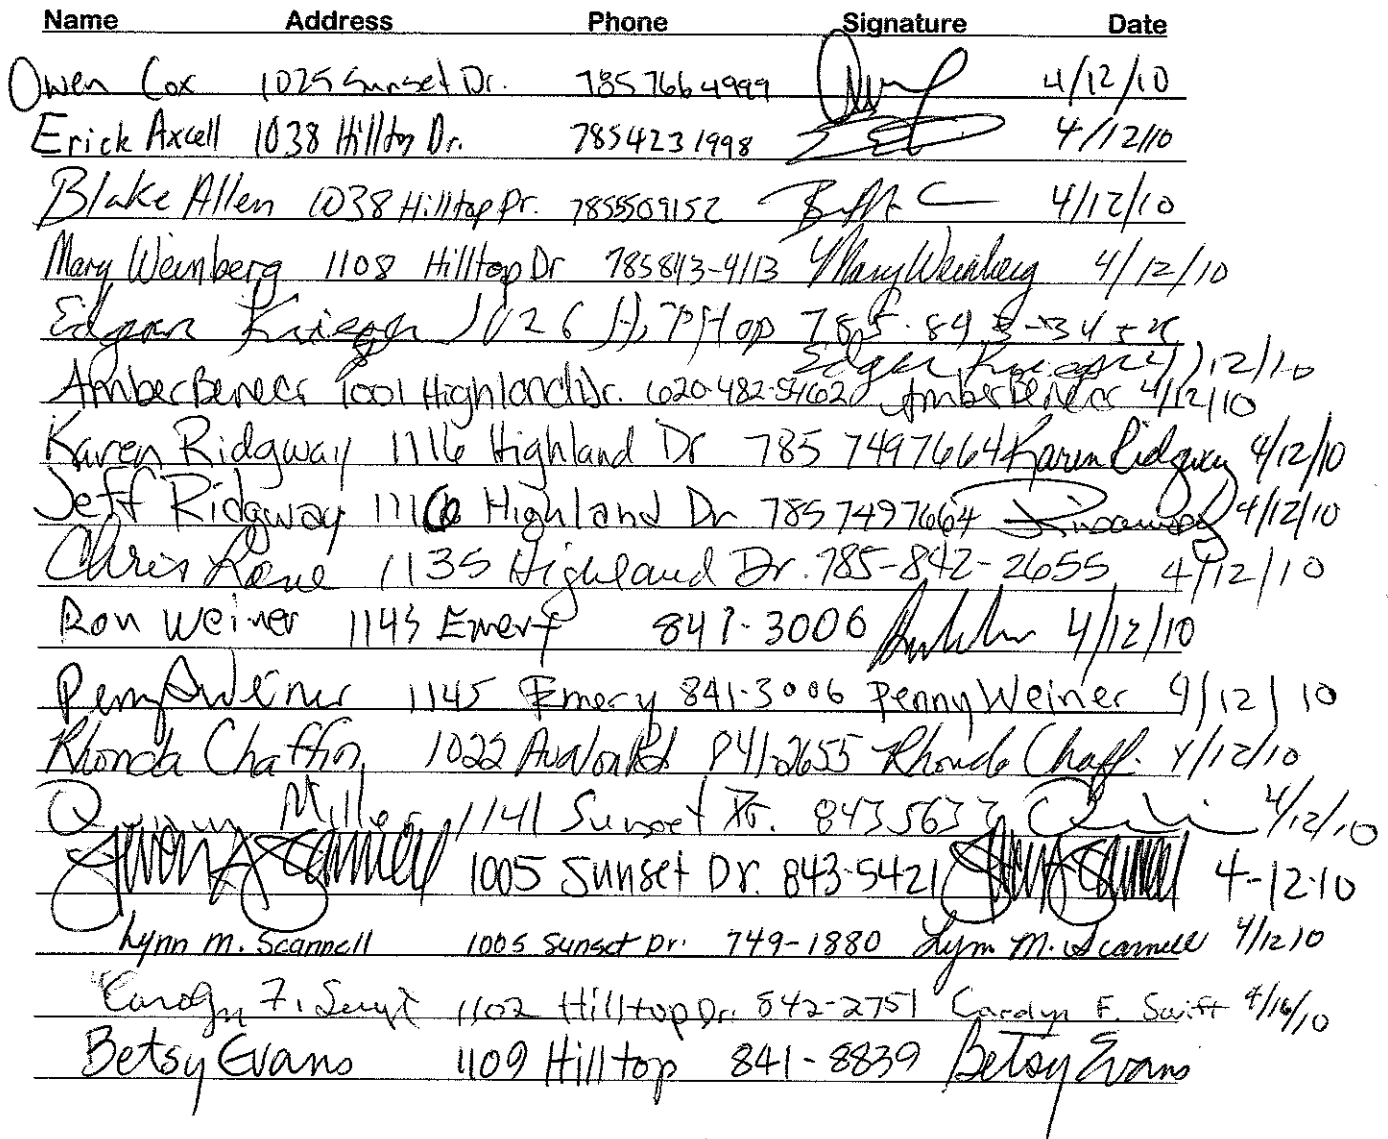 Name Address Phone Signature Date
Owen Cox 1025 Sunset Dr. 785 766 4999 4/12/10
Erick Axcell 1038 Hilltop Dr. 785 423 1998 4/12/10
Blake Allen 1038 Hilltop Dr. 7855509152 4/12/10
Mary Weinberg 1108 Hilltop Dr 785 843-4113 Mary Weinberg 4/12/10
Edgar Krieger 1026 Hilltop 785-843-
Edgar Krieger 4/12/10
Amber Beneas 1001 Highland Dr. 620-482-5462 Amber Beneas 4/12/10
Karen Ridgway 1116 Highland Dr 785 7497664 Karen Ridgway 4/12/10
Jeff Ridgway 1116 Highland Dr 785 7497664 4/12/10
Chris Lane 1135 Highland Dr. 785-842-2655 4/12/10
Ron Weiner 1145 Emery 841-3006 4/12/10
Penny Weiner 1145 Emery 841-3006 Penny Weiner 4/12/10
Rhonda Chaffin 1022 Avalon Rd 841-2655 Rhonda Chaff. 4/12/10
Miller 1141 Sunset Dr. 843 5637 4/12/10
1005 Sunset Dr. 843-5421 4-12-10
Lynn M. Scannell 1005 Sunset Dr. 749-1880 Lynn M. Scannell 4/12/10
Carolyn F. Swift 1102 Hilltop Dr. 842-2751 Carolyn F. Swift 4/16/10
Betsy Evans 1109 Hilltop 841-8839 Betsy Evans